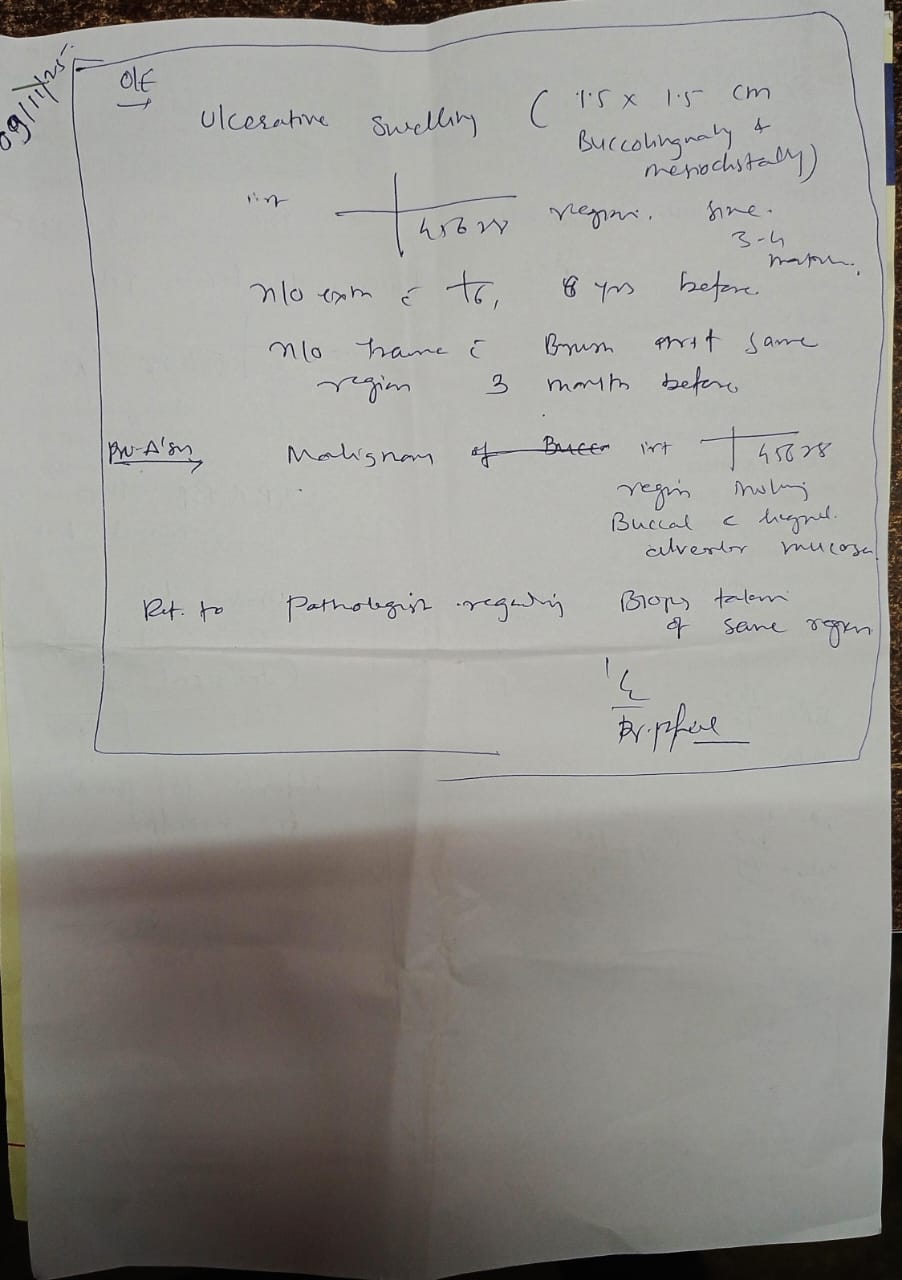 09/11/25
O/E
Ulcerative Swelling ( 1.5 x 1.5 cm
Buccolingualy &
mesiodistaly)
irt 45678 region. Since
3-4
month
H/o extn c 6, 8 yrs before
H/o trauma c Brush irt same
region 3 months before
Malignancy of Bucco irt 45678
region involving
Buccal c lingual
alveolar mucosa
Ref. to Pathologist regarding Biopsy taken
of same region